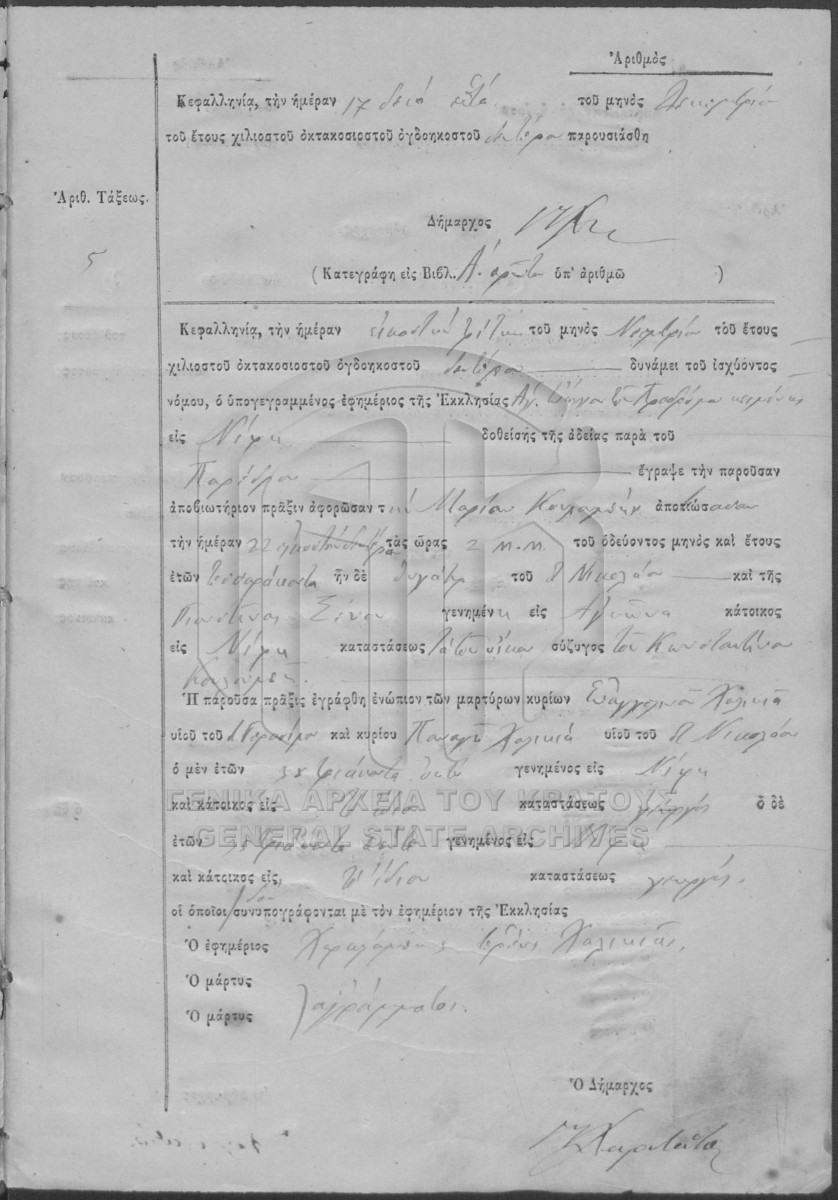 Ἀριθμὸς
Κεφαλληνίᾳ, τὴν ἡμέραν 17 δεκά ἑπτά τοῦ μηνὸς Δεκεμβρίου
τοῦ ἔτους χιλιοστοῦ ὀκτακοσιοστοῦ ὀγδοηκοστοῦ δευτέρου παρουσιάσθη
Ἀριθ. Τάξεως.
5
Δήμαρχος
(Κατεγράφη εἰς Βιβλ. Α. πρῶτον ὑπ' ἀριθμῷ )
Κεφαλληνίᾳ, τὴν ἡμέραν εἰκοστὴν τρίτην τοῦ μηνὸς Νοεμβρίου τοῦ ἔτους
χιλιοστοῦ ὀκτακοσιοστοῦ ὀγδοηκοστοῦ δευτέρου δυνάμει τοῦ ἰσχύοντος
νόμου, ὁ ὑπογεγραμμένος ἐφημέριος τῆς Ἐκκλησίας Ἁγ. Ἰωάννου τοῦ Προδρόμου κειμένης
εἰς Νύφι δοθείσης τῆς ἀδείας παρὰ τοῦ
Παρέδρου ἔγραψε τὴν παροῦσαν
ἀποβιωτήριον πρᾶξιν ἀφορῶσαν τὴν Μαρίαν ἀποβιώσασαν
τὴν ἡμέραν 22 εἰκοστὴν δευτέραν τὰς ὥρας 2 μ.μ. τοῦ ὁδεύοντος μηνὸς καὶ ἔτους
ἐτῶν τεσσαράκοντα ἦν δὲ θυγάτηρ τοῦ π Νικολάου καὶ τῆς
γενημένη εἰς Ἀγκῶνα κάτοικος
εἰς Νύφι καταστάσεως τὰ τοῦ οἴκου σύζυγος τοῦ Κωνσταντίνου
Ἡ παροῦσα πρᾶξις ἐγράφθη ἐνώπιον τῶν μαρτύρων κυρίων Εὐαγγελινοῦ Χαλικιᾶ
υἱοῦ τοῦ π Γερασίμου καὶ κυρίου Παναγῆ Χαλικιᾶ υἱοῦ τοῦ π Νικολάου
ὁ μὲν ἐτῶν 38 τριάκοντα ὀκτώ γενημένος εἰς Νύφι
καὶ κάτοικος εἰς τὸ ἴδιον καταστάσεως γεωργός ὁ δὲ
ἐτῶν τριάκοντα γενημένος εἰς
καὶ κάτοικος εἰς, τὸ ἴδιον καταστάσεως γεωργός.
οἱ ὁποῖοι δὲν συνυπογράφονται μὲ τὸν ἐφημέριον τῆς Ἐκκλησίας
Ὁ ἐφημέριος Χαράλαμπος ἱερεὺς Χαλικιᾶς.
Ὁ μάρτυς
Ὁ μάρτυς } ἀγράμματοι.
Ὁ Δήμαρχος
ΓΕΝΙΚΑ ΑΡΧΕΙΑ ΤΟΥ ΚΡΑΤΟΥΣ
GENERAL STATE ARCHIVES